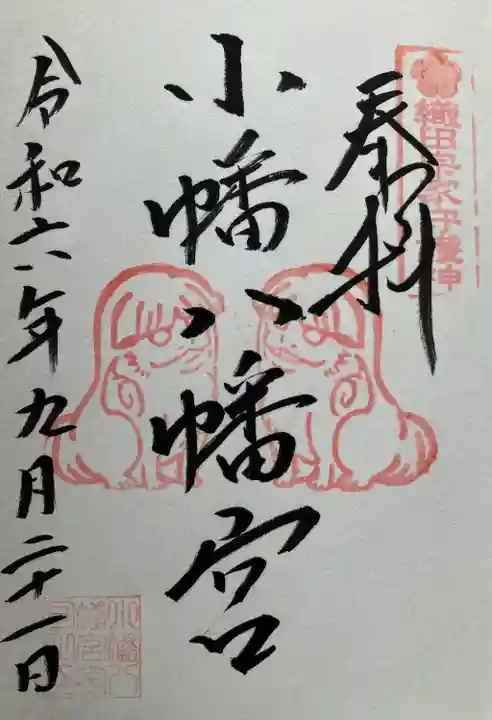 奉拝
織田宗家守護神
小幡八幡宮
令和六年九月二十一日